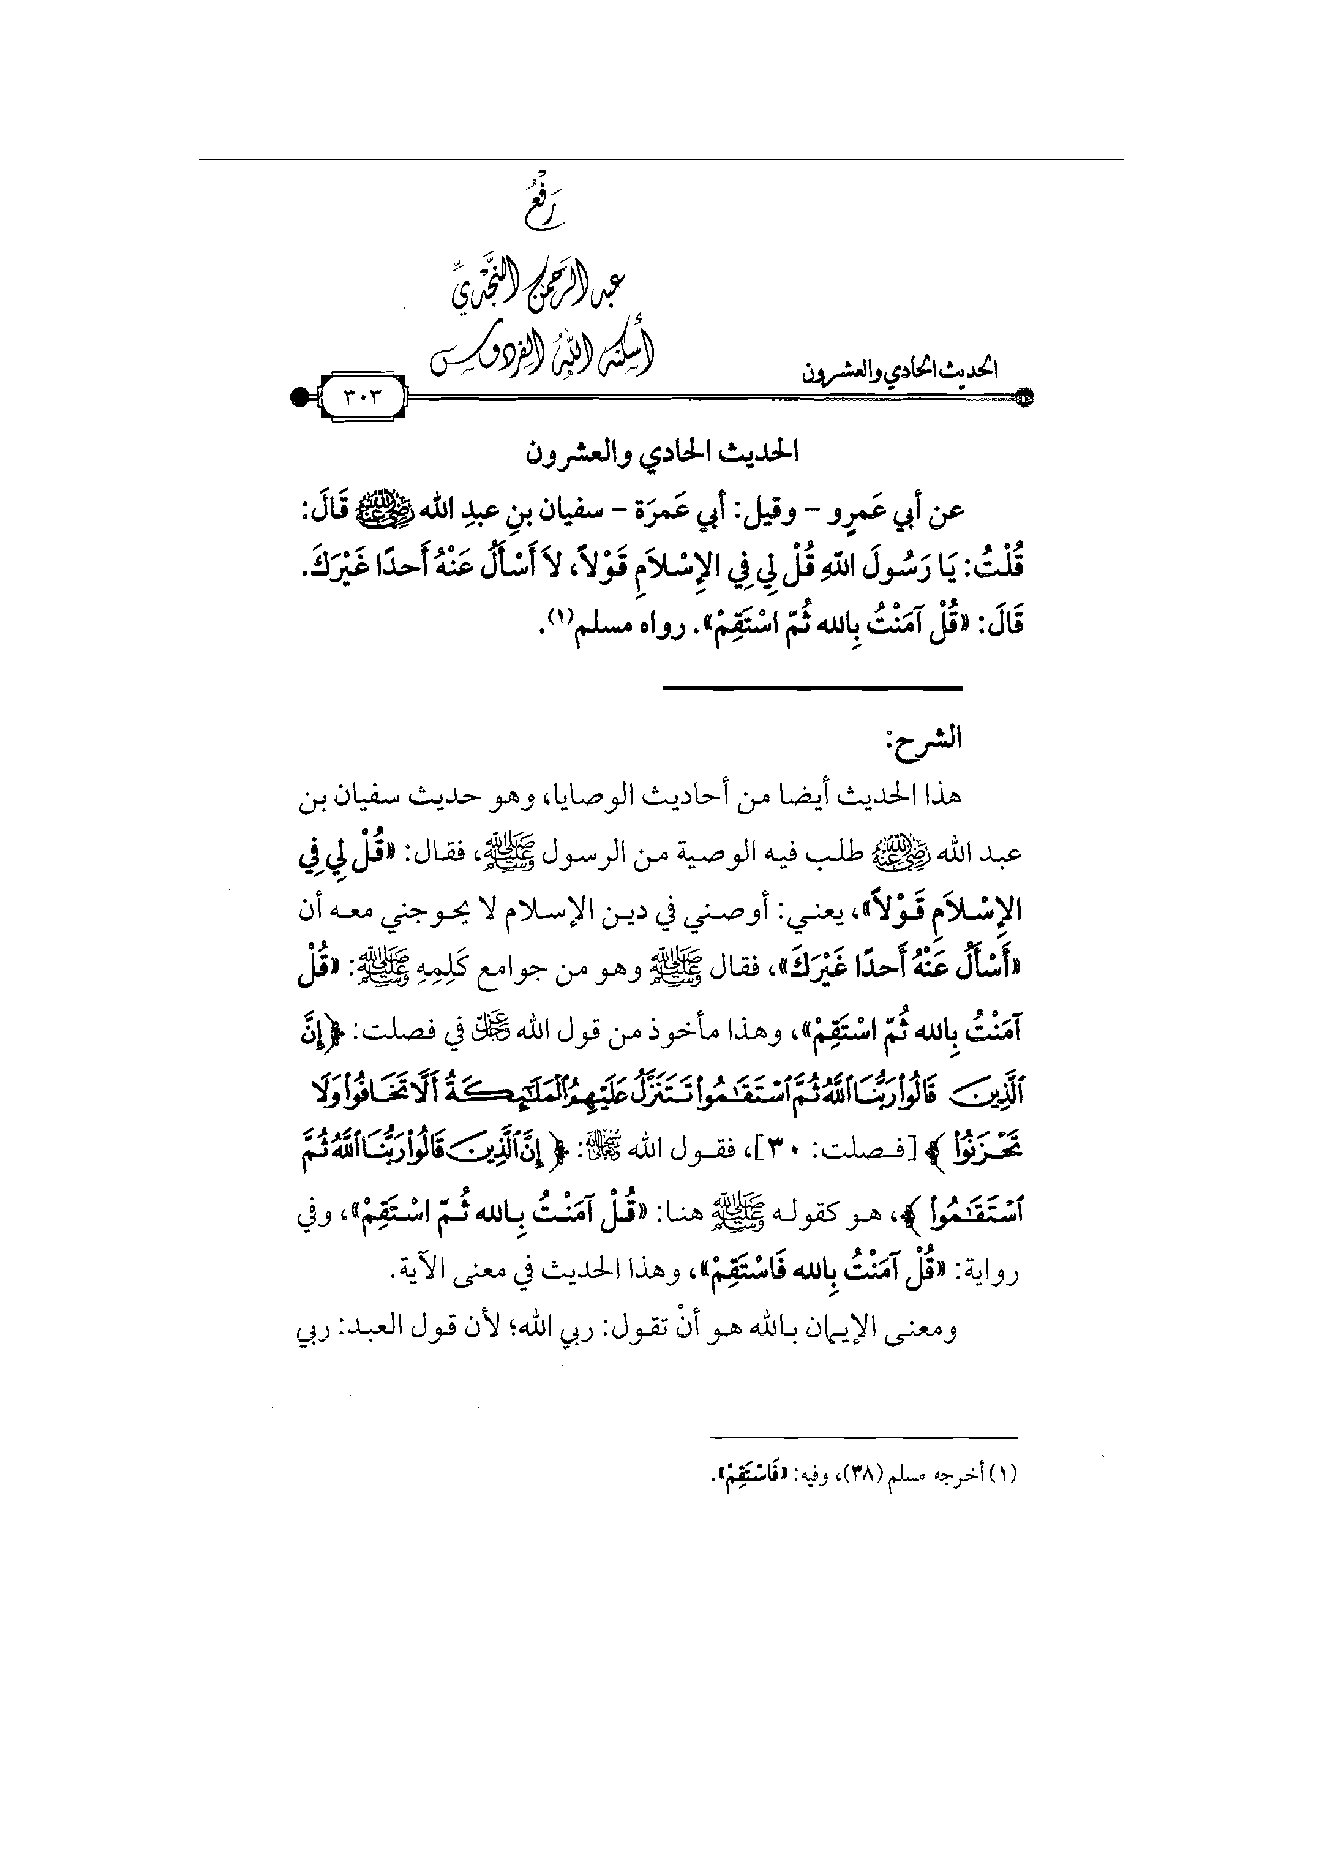 رَفْعُ
عبد الرحمن النجدي
أسكنه الله الفردوس
الحديث الحادي والعشرون
٣٠٣
الحديث الحادي والعشرون
عن أبي عَمرٍو - وقيل: أبي عَمرَة - سفيان بنِ عبدِ الله رضي الله عنه قَالَ:
قُلْتُ: يَا رَسُولَ اللهِ قُلْ لِي فِي الإِسْلاَمِ قَوْلاً، لاَ أَسْأَلُ عَنْهُ أَحدًا غَيْرَكَ.
قَالَ: «قُلْ آمَنْتُ بِالله ثُمّ اسْتَقِمْ». رواه مسلم(١).
الشرح:
هذا الحديث أيضا من أحاديث الوصايا، وهو حديث سفيان بن
عبد الله رضي الله عنه طلب فيه الوصية من الرسول ﷺ، فقال: «قُلْ لِي فِي
الإِسْلاَمِ قَوْلاً»، يعني: أوصني في دين الإسلام لا يحوجني معه أن
«أَسْأَلُ عَنْهُ أَحدًا غَيْرَكَ»، فقال ﷺ وهو من جوامع كَلِمِهِ ﷺ: «قُلْ
آمَنْتُ بِالله ثُمّ اسْتَقِمْ»، وهذا مأخوذ من قول الله عز وجل في فصلت: ﴿إِنَّ
ٱلَّذِينَ قَالُوا۟ رَبُّنَا ٱللَّهُ ثُمَّ ٱسْتَقَـٰمُوا۟ تَتَنَزَّلُ عَلَيْهِمُ ٱلْمَلَـٰٓئِكَةُ أَلَّا تَخَافُوا۟ وَلَا
تَحْزَنُوا۟﴾ [فصلت: ٣٠]، فقول الله جل جلاله: ﴿إِنَّ ٱلَّذِينَ قَالُوا۟ رَبُّنَا ٱللَّهُ ثُمَّ
ٱسْتَقَـٰمُوا۟﴾، هو كقوله ﷺ هنا: «قُلْ آمَنْتُ بِالله ثُمّ اسْتَقِمْ»، وفي
رواية: «قُلْ آمَنْتُ بِالله فَاسْتَقِمْ»، وهذا الحديث في معنى الآية.
ومعنى الإيمان بالله هو أنْ تقول: ربي الله؛ لأن قول العبد: ربي
(١) أخرجه مسلم (٣٨)، وفيه: «فَاسْتَقِمْ».